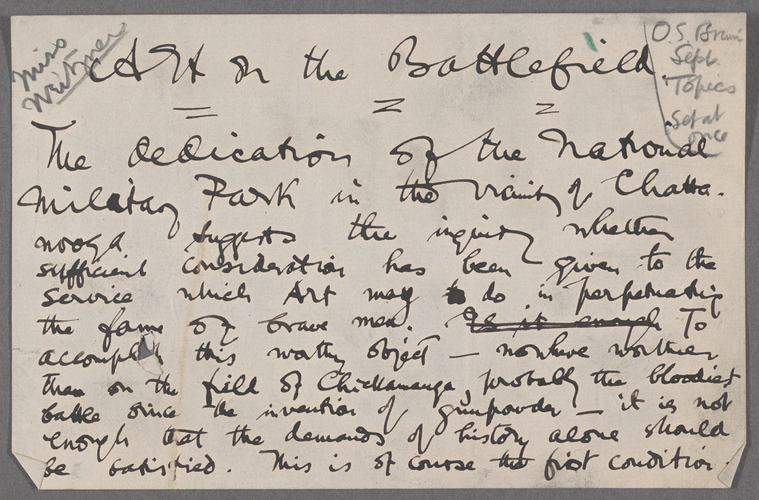 Miss
Weitzner
Art on the Battlefield.
O.S. 
Sept.
Topics
Set at
once
The dedication of the National
Military Park in the vicinity of Chatta-
nooga suggests the inquiry whether
sufficient consideration has been given to the
service which Art may do in perpetuating
the fame of brave men. Is it enough To
accomplish this worthy object — nowhere worthier
than on the field of Chickamauga, probably the bloodiest
battle since the invention of gunpowder — it is not
enough that the demands of history alone should
be satisfied. This is of course the first condition.